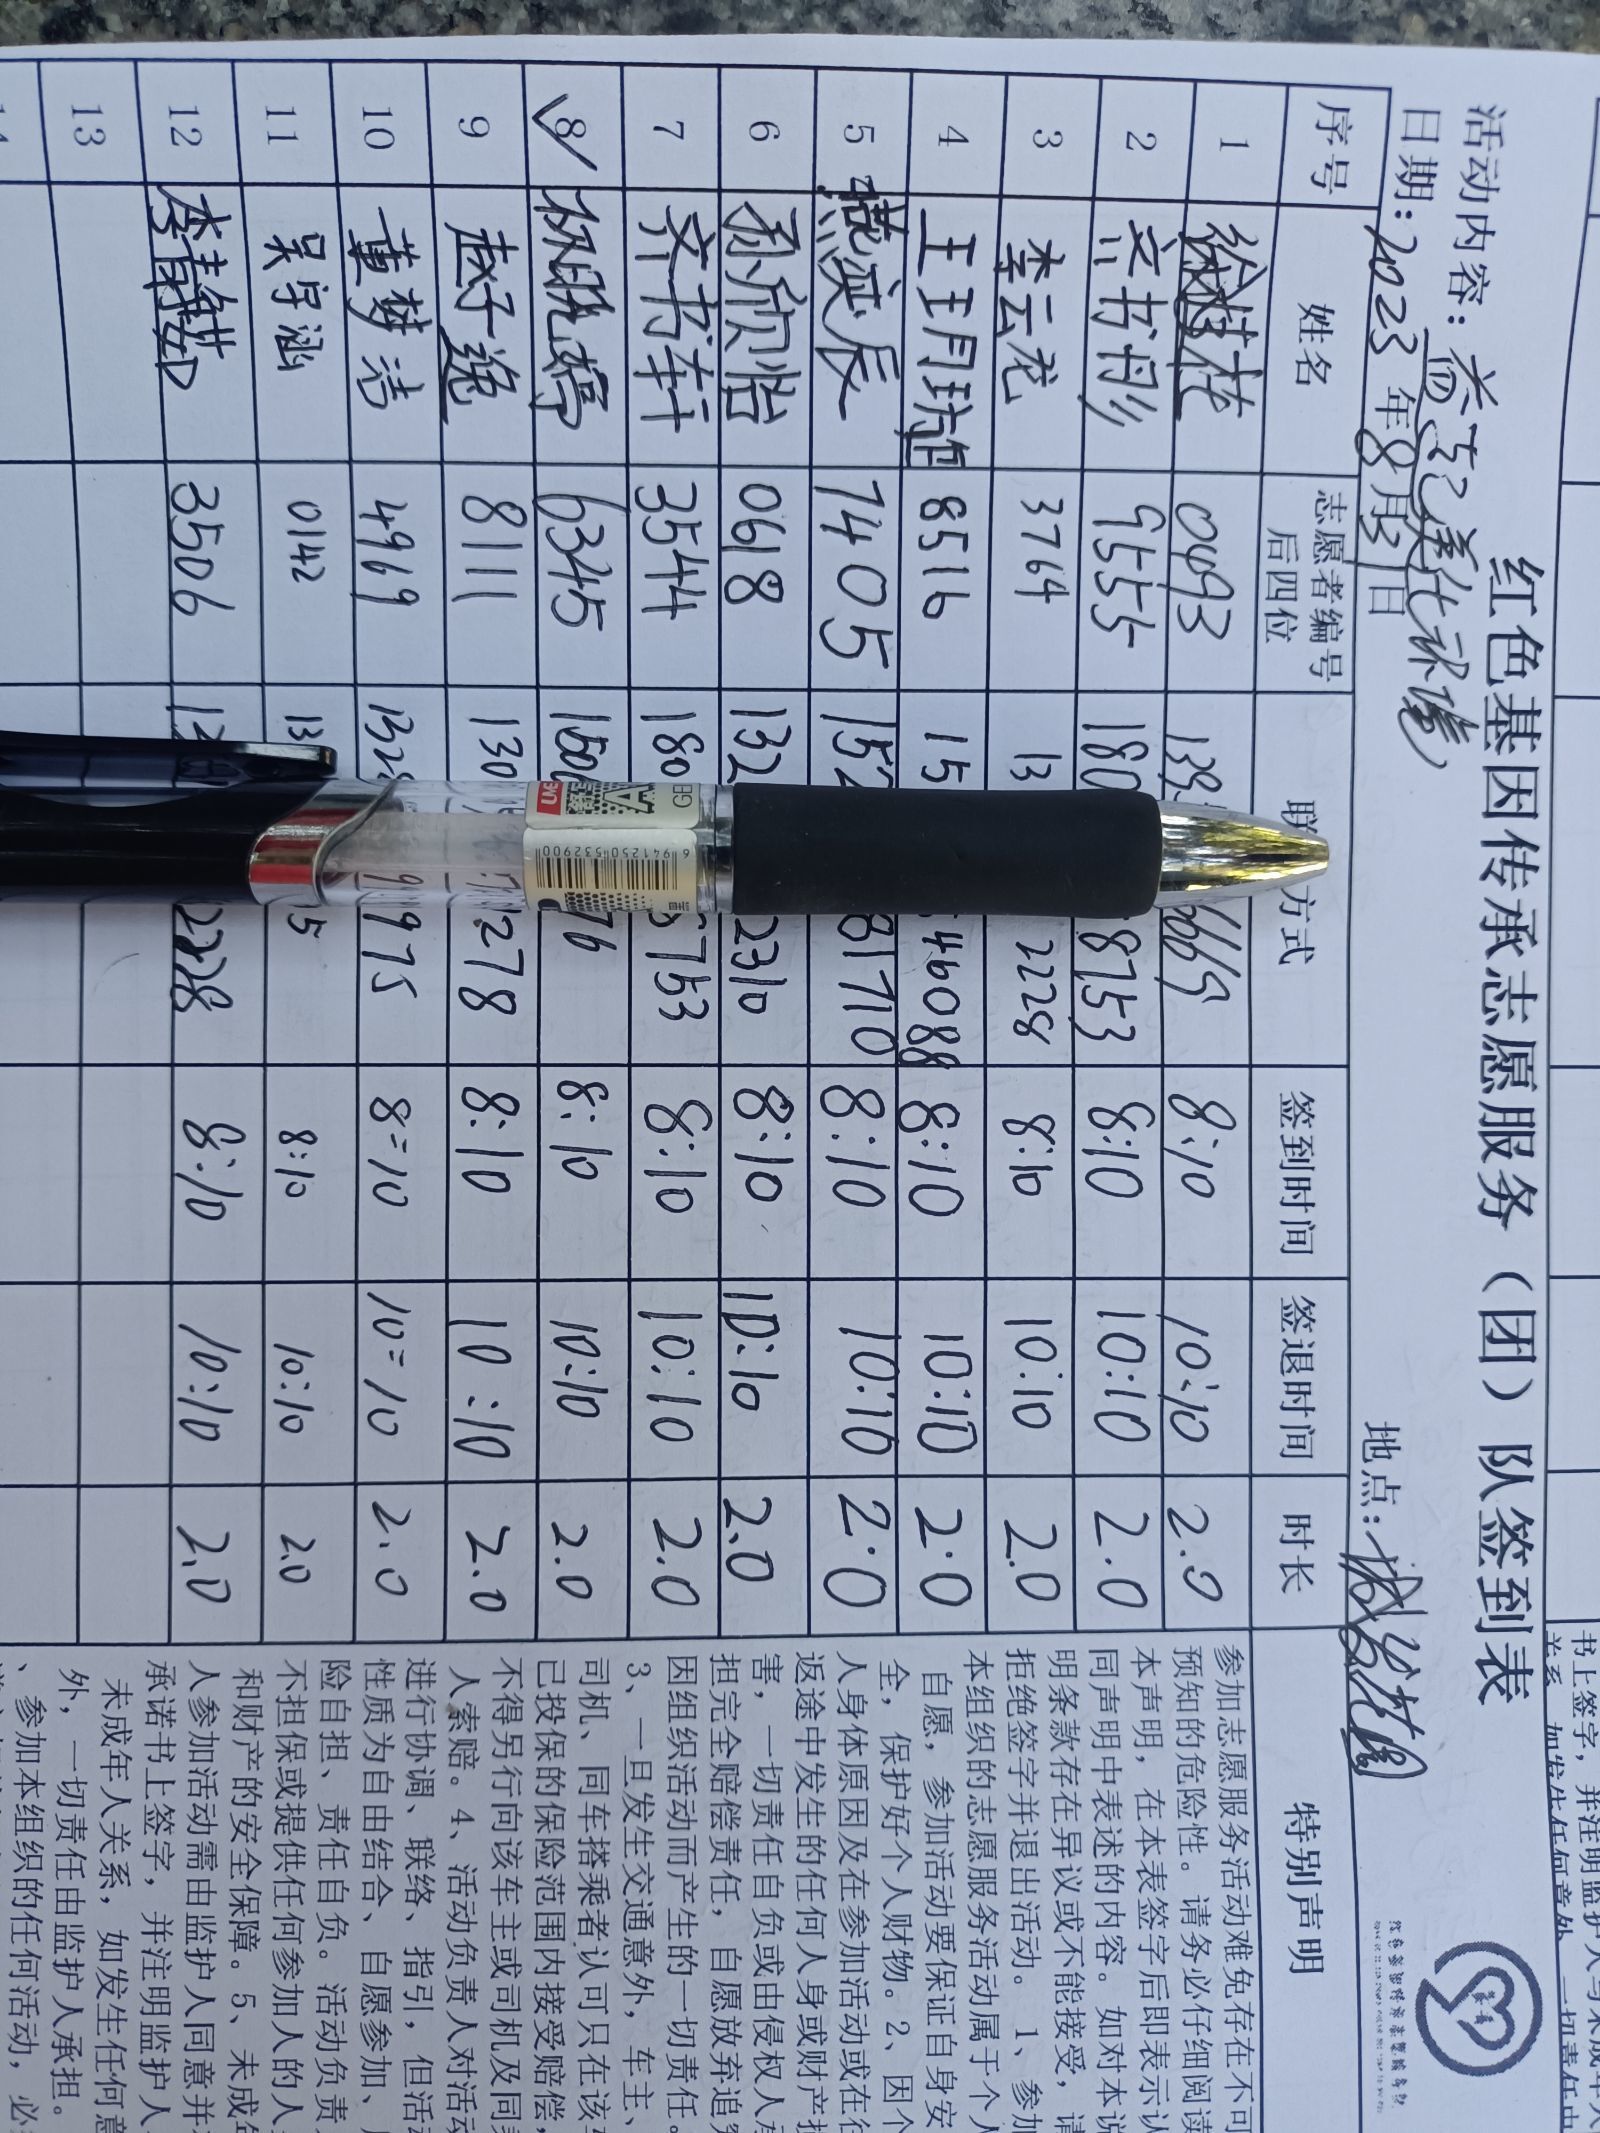 红色基因传承志愿服务（团）队签到表
活动内容：
日期：2023年8月31日 地点：
序号 姓名 志愿者编号后四位 联 方式 签到时间 签退时间 时长 特别声明
1 0493 139 6669 8:10 10:10 2.0
2 齐书彤 9555 180 8753 8:10 10:10 2.0
3 李云龙 3764 13 2228 8:10 10:10 2.0
4 8516 15 46088 8:10 10:10 2.0
5 7405 152 81710 8:10 10:10 2.0
6 孙欣怡 0618 132 2310 8:10 10:10 2.0
7 齐书轩 3544 180 8753 8:10 10:10 2.0
8 6345 150 76 8:10 10:10 2.0
9 赵子逸 8111 130 278 8:10 10:10 2.0
10 黄梦洁 4969 132 9975 8:10 10:10 2.0
11 吴宇涵 0142 13 5 8:10 10:10 2.0
12 3506 2228 8:10 10:10 2.0
13
参加志愿服务活动难免存在不可
预知的危险性。请务必仔细阅读
本声明，在本表签字后即表示认
同声明中表述的内容。如对本说
明条款存在异议或不能接受，请
拒绝签字并退出活动。1、参加
本组织的志愿服务活动属于个人
自愿，参加活动要保证自身安
全，保护好个人财物。2、因个
人身体原因及在参加活动或在往
返途中发生的任何人身或财产损
害，一切责任自负或由侵权人承
担完全赔偿责任，自愿放弃追究
因组织活动而产生的一切责任。
3、一旦发生交通意外，车主、
司机、同车搭乘者认可只在该车
已投保的保险范围内接受赔偿，
不得另行向该车主或司机及同乘
人索赔。4、活动负责人对活动
进行协调、联络、指引，但活动
性质为自由结合、自愿参加、风
险自担、责任自负。活动负责人
不担保或提供任何参加人的人身
和财产的安全保障。5、未成年
人参加活动需由监护人同意并在
承诺书上签字，并注明监护人与
未成年人关系，如发生任何意
外，一切责任由监护人承担。
、参加本组织的任何活动，必
书上签字，并注明监护人与未成年人
关系，如发生任何意外，一切责任由
GB
6 941250 532900